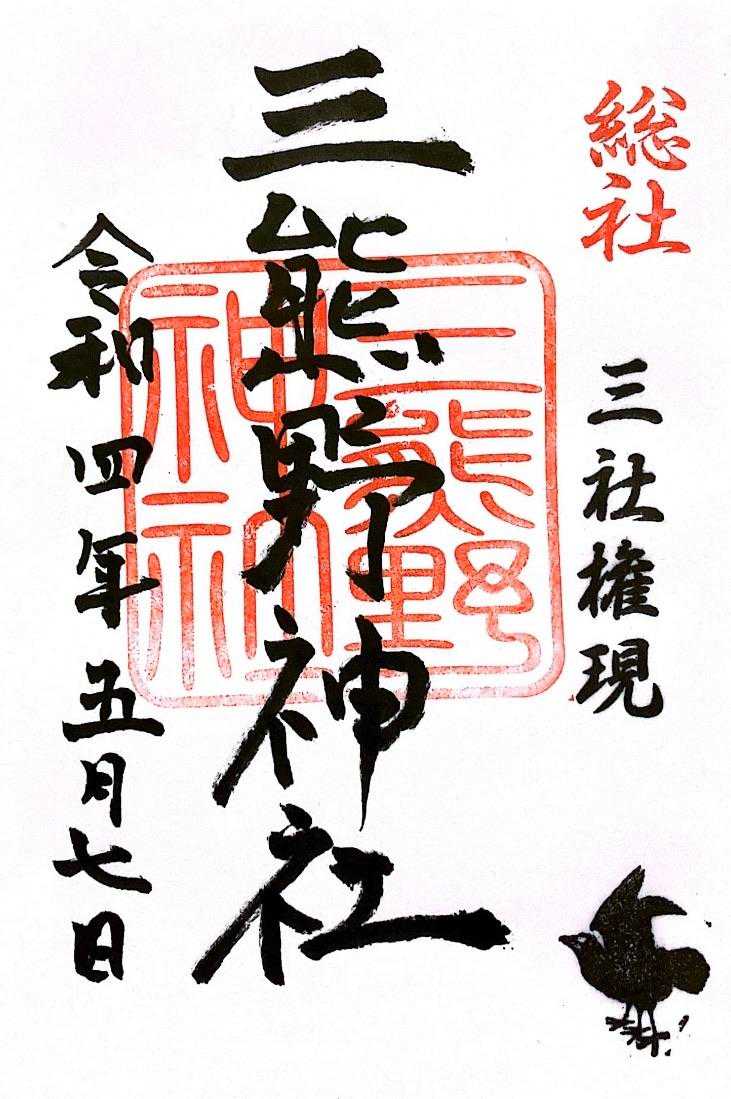 総社
三社権現
三熊野神社
三熊野
神社
令和四年五月七日